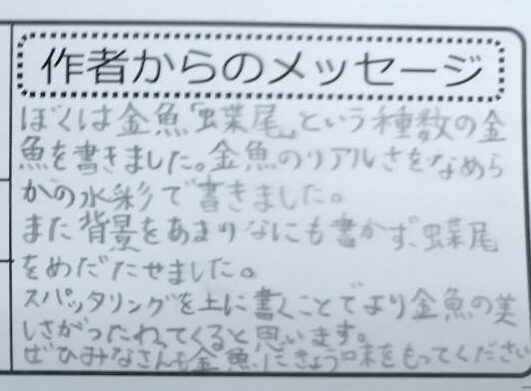 作者からのメッセージ
ぼくは金魚「蝶尾」という種数の金
魚を書きました。金魚のリアルさをなめら
かの水彩で書きました。
また背景をあまりなにも書かず、蝶尾
をめだたせました。
スパッタリングを土に書くことでより金魚の美
しさがつたわってくると思います。
ぜひみなさんも金魚にきょう味をもってください